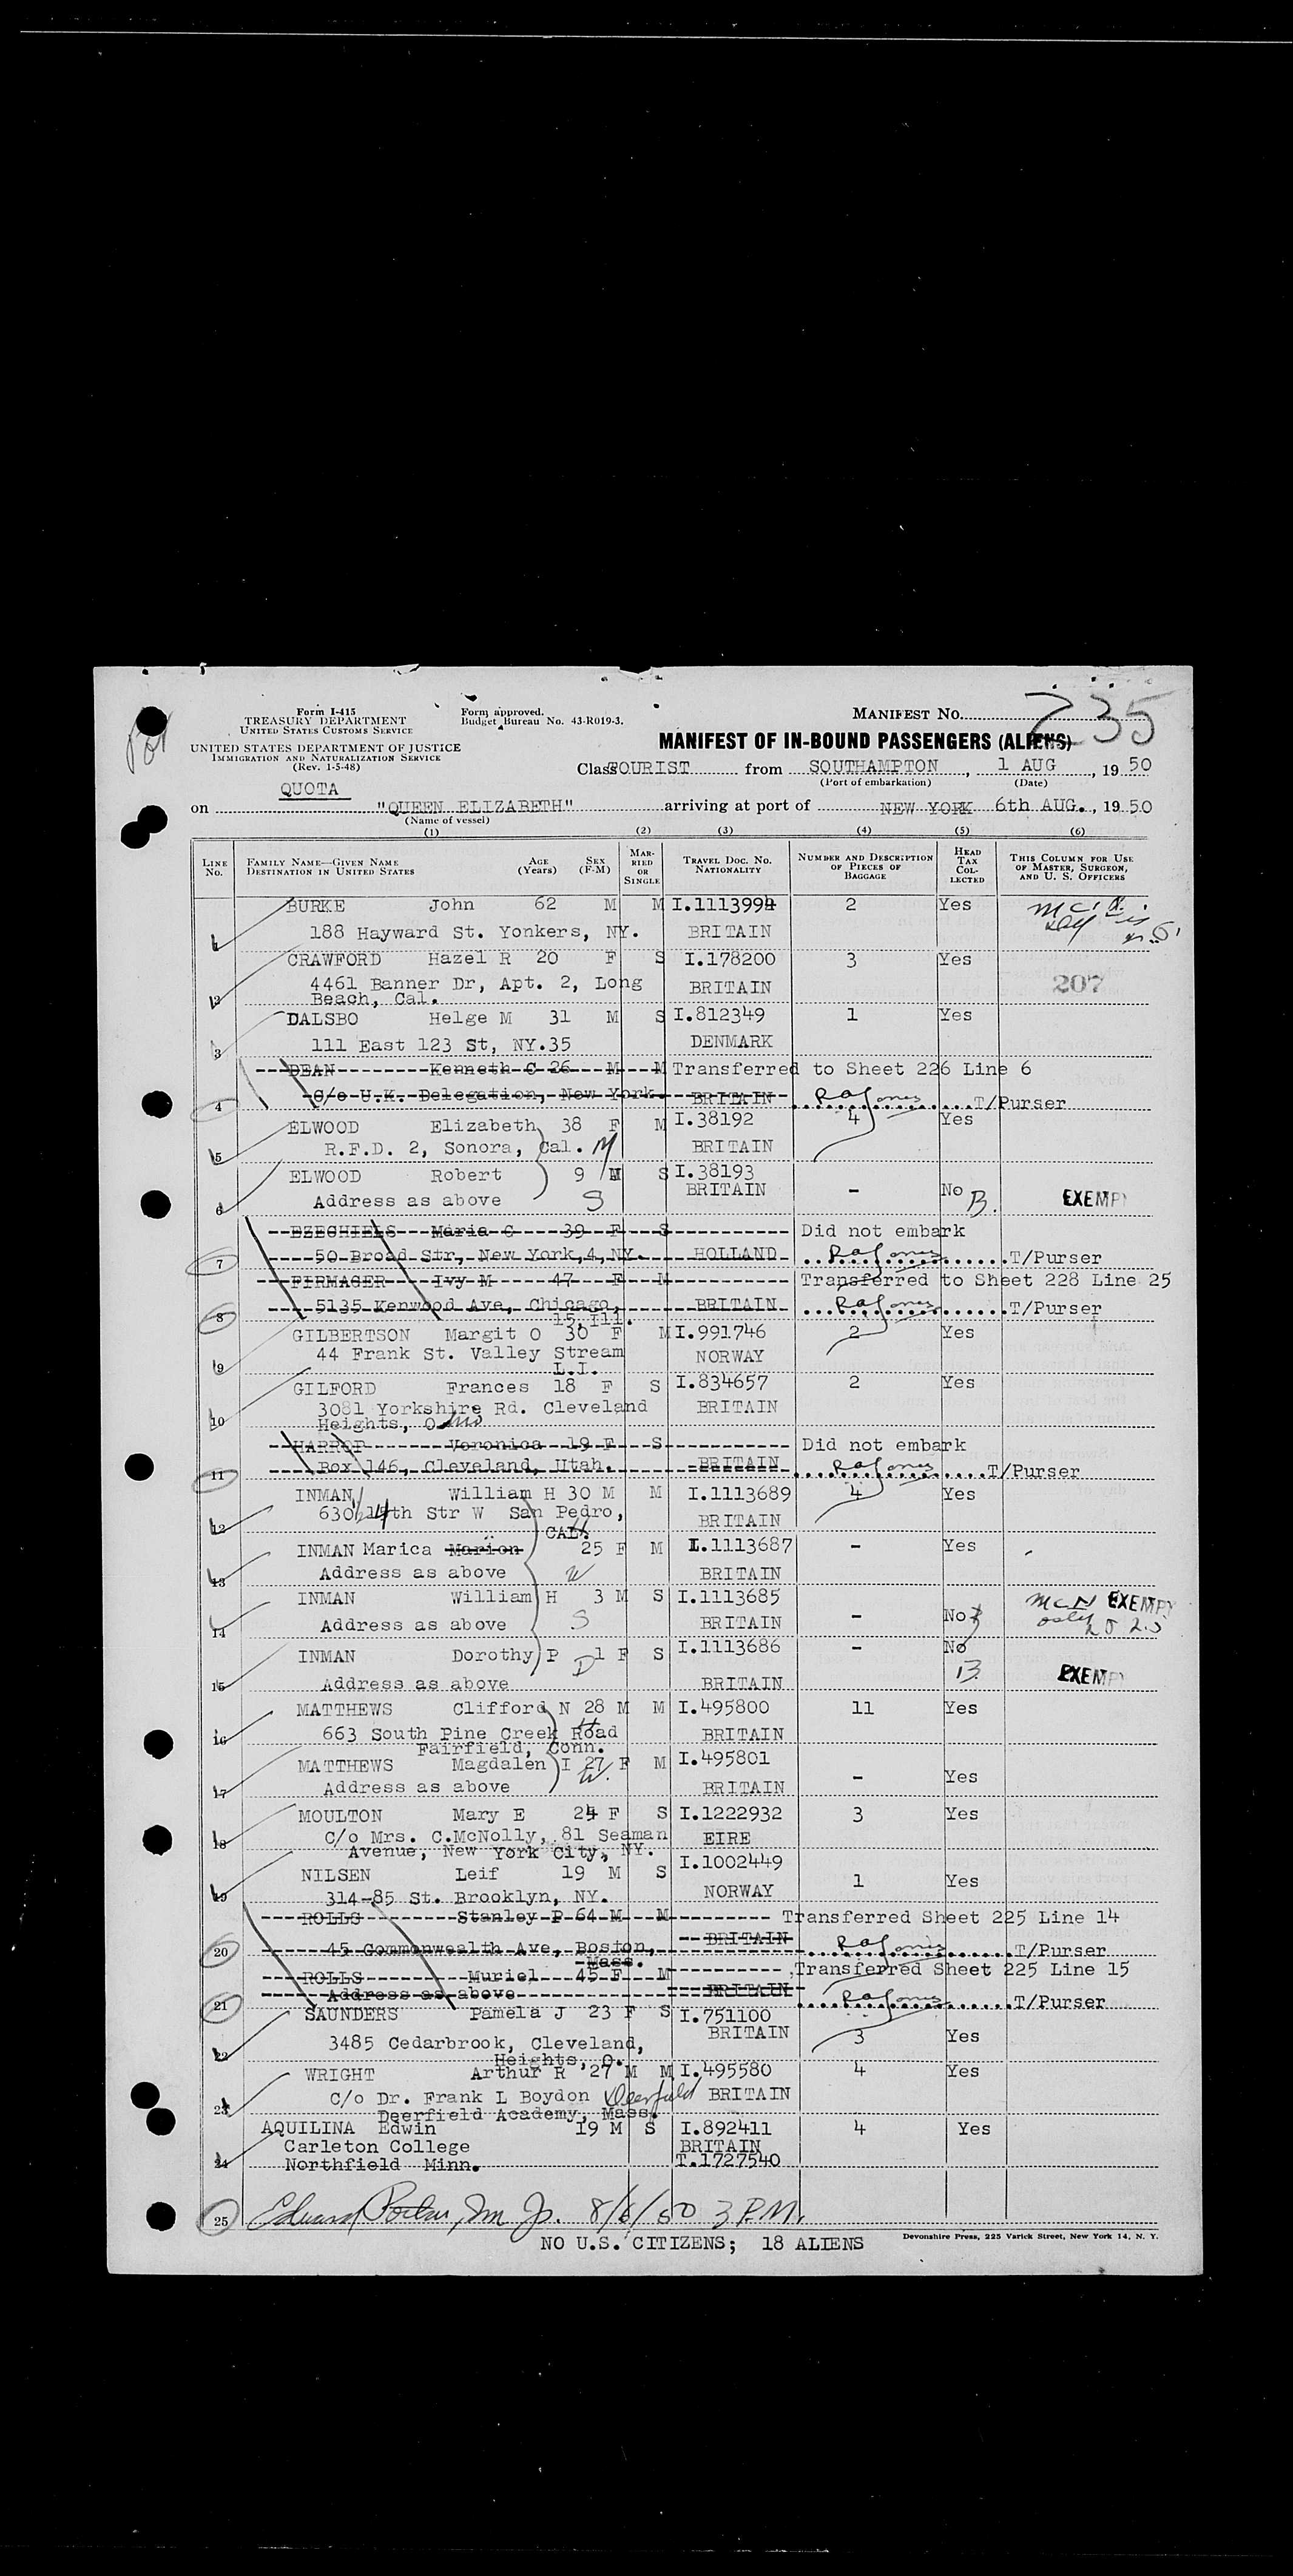 235
Form I-415
TREASURY DEPARTMENT
UNITED STATES CUSTOMS SERVICE
Form approved.
Budget Bureau No. 43-R019-3.
MANIFEST No.
UNITED STATES DEPARTMENT OF JUSTICE
IMMIGRATION AND NATURALIZATION SERVICE
(Rev. 1-5-48)
MANIFEST OF IN-BOUND PASSENGERS (ALIENS)
Class TOURIST from SOUTHAMPTON, 1 AUG, 1950
(Port of embarkation) (Date)
QUOTA
on "QUEEN ELIZABETH" arriving at port of NEW YORK 6th AUG., 1950
(Name of vessel)
(1) (2) (3) (4) (5) (6)
LINE No. FAMILY NAME—GIVEN NAME DESTINATION IN UNITED STATES AGE (Years) SEX (F-M) MARRIED OR SINGLE TRAVEL DOC. NO. NATIONALITY NUMBER AND DESCRIPTION OF PIECES OF BAGGAGE HEAD TAX COLLECTED THIS COLUMN FOR USE OF MASTER, SURGEON, AND U. S. OFFICERS
BURKE John 62 M M I.1113994 2 Yes
1 188 Hayward St. Yonkers, NY. BRITAIN
CRAWFORD Hazel R 20 F S I.178200 3 Yes
4461 Banner Dr, Apt. 2, Long BRITAIN 207
2 Beach, Cal.
DALSBO Helge M 31 M S I.812349 1 Yes
3 111 East 123 St, NY.35 DENMARK
DEAN Kenneth C 26 M M Transferred to Sheet 226 Line 6
4 C/o U.K. Delegation, New York. BRITAIN RaJones T/Purser
ELWOOD Elizabeth 38 F M I.38192 4 Yes
5 R.F.D. 2, Sonora, Cal. M BRITAIN
ELWOOD Robert 9 M S I.38193
6 Address as above S BRITAIN - No B. EXEMP
EZECHIELS Maria C 39 F S Did not embark
7 50 Broad Str, New York,4, NY. HOLLAND RaJones T/Purser
FIRMAGER Ivy M 47 F M Transferred to Sheet 228 Line 25
8 5135 Kenwood Ave, Chicago, BRITAIN RaJones T/Purser
15, Ill.
GILBERTSON Margit O 30 F M I.991746 2 Yes
9 44 Frank St. Valley Stream NORWAY
L.I.
GILFORD Frances 18 F S I.834657 2 Yes
3081 Yorkshire Rd. Cleveland BRITAIN
10 Heights, O
HARROP Veronica 19 F S Did not embark
11 Box 146, Cleveland, Utah. BRITAIN RaJones T/Purser
INMAN William H 30 M M I.1113689 4 Yes
12 630 14th Str W San Pedro, BRITAIN
CAL. H
INMAN Marica Marion 25 F M I.1113687 - Yes
13 Address as above W BRITAIN
INMAN William H 3 M S I.1113685 EXEMP
14 Address as above S BRITAIN - No
INMAN Dorothy P 1 F S I.1113686 - No
15 Address as above D BRITAIN B. EXEMP
MATTHEWS Clifford N 28 M M I.495800 11 Yes
16 663 South Pine Creek Road H BRITAIN
Fairfield, Conn.
MATTHEWS Magdalen I 27 F M I.495801
17 Address as above W. BRITAIN - Yes
MOULTON Mary E 24 F S I.1222932 3 Yes
18 C/o Mrs. C.McNolly, 81 Seaman EIRE
Avenue, New York City, NY.
NILSEN Leif 19 M S I.1002449 1 Yes
19 314-85 St. Brooklyn, NY. NORWAY
ROLLS Stanley P 64 M M Transferred Sheet 225 Line 14
20 45 Commonwealth Ave, Boston, BRITAIN RaJones T/Purser
Mass.
ROLLS Muriel 45 F M Transferred Sheet 225 Line 15
21 Address as above BRITAIN RaJones T/Purser
SAUNDERS Pamela J 23 F S I.751100
BRITAIN 3 Yes
22 3485 Cedarbrook, Cleveland,
Heights, O.
WRIGHT Arthur R 27 M M I.495580 4 Yes
23 C/o Dr. Frank L Boydon Deerfield BRITAIN
Deerfield Academy, Mass.
AQUILINA Edwin 19 M S I.892411 4 Yes
Carleton College BRITAIN
24 Northfield Minn. T.1727540
25 8/6/50 3 P.M.
NO U.S. CITIZENS; 18 ALIENS
Devonshire Press, 225 Varick Street, New York 14, N. Y.